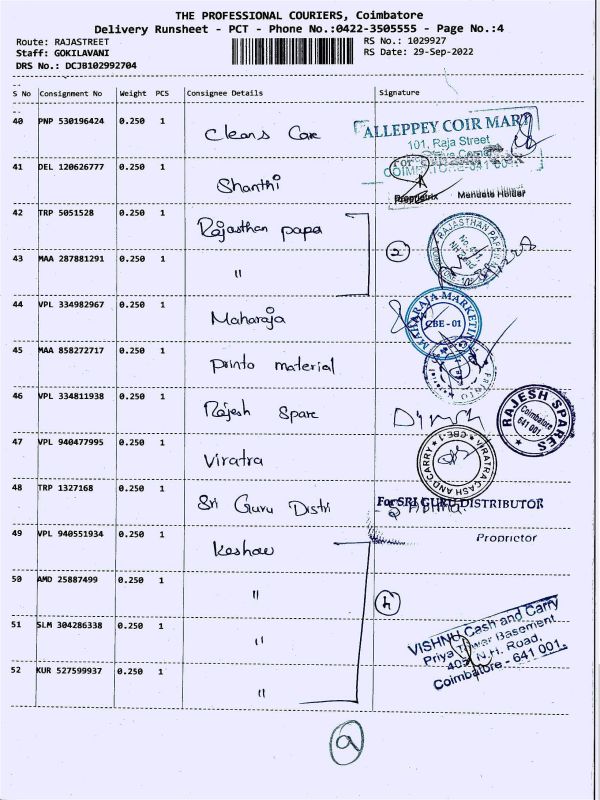 THE PROFESSIONAL COURIERS, Coimbatore
Delivery Runsheet - PCT - Phone No.:0422-3505555 - Page No.:4
Route: RAJASTREET
RS No.: 1029927
Staff: GOKILAVANI
RS Date: 29-Sep-2022
DRS No.: DCJB102992704
S No Consignment No Weight PCS Consignee Details Signature
40 PNP 530196424 0.250 1 Cleans Care
ALLEPPEY COIR MART
101, Raja Street
41 DEL 120626777 0.250 1 Shanthi
For
Proprietrix Mandate Holder
42 TRP 5051528 0.250 1 Rajasthan papa
2
RAJASTHAN
43 MAA 287881291 0.250 1 "
44 VPL 334982967 0.250 1 Maharaja
MAHARAJA MARKETING
CBE - 01
45 MAA 858272717 0.250 1 Printo material
46 VPL 334811938 0.250 1 Rajesh Spare
RAJESH SPARES
Coimbatore
641 001
47 VPL 940477995 0.250 1 Viratra
VIRATRA CASH AND CARRY
CBE-1
48 TRP 1327168 0.250 1 Sri Guru Distri
For SRI GURU DISTRIBUTOR
49 VPL 940551934 0.250 1 Keshav
Proprietor
50 AMD 25887499 0.250 1 "
4
51 SLM 304286338 0.250 1 "
VISHNU Cash and Carry
Priya Tower Basement
403, N.H. Road,
Coimbatore - 641 001.
52 KUR 527599937 0.250 1 "
9